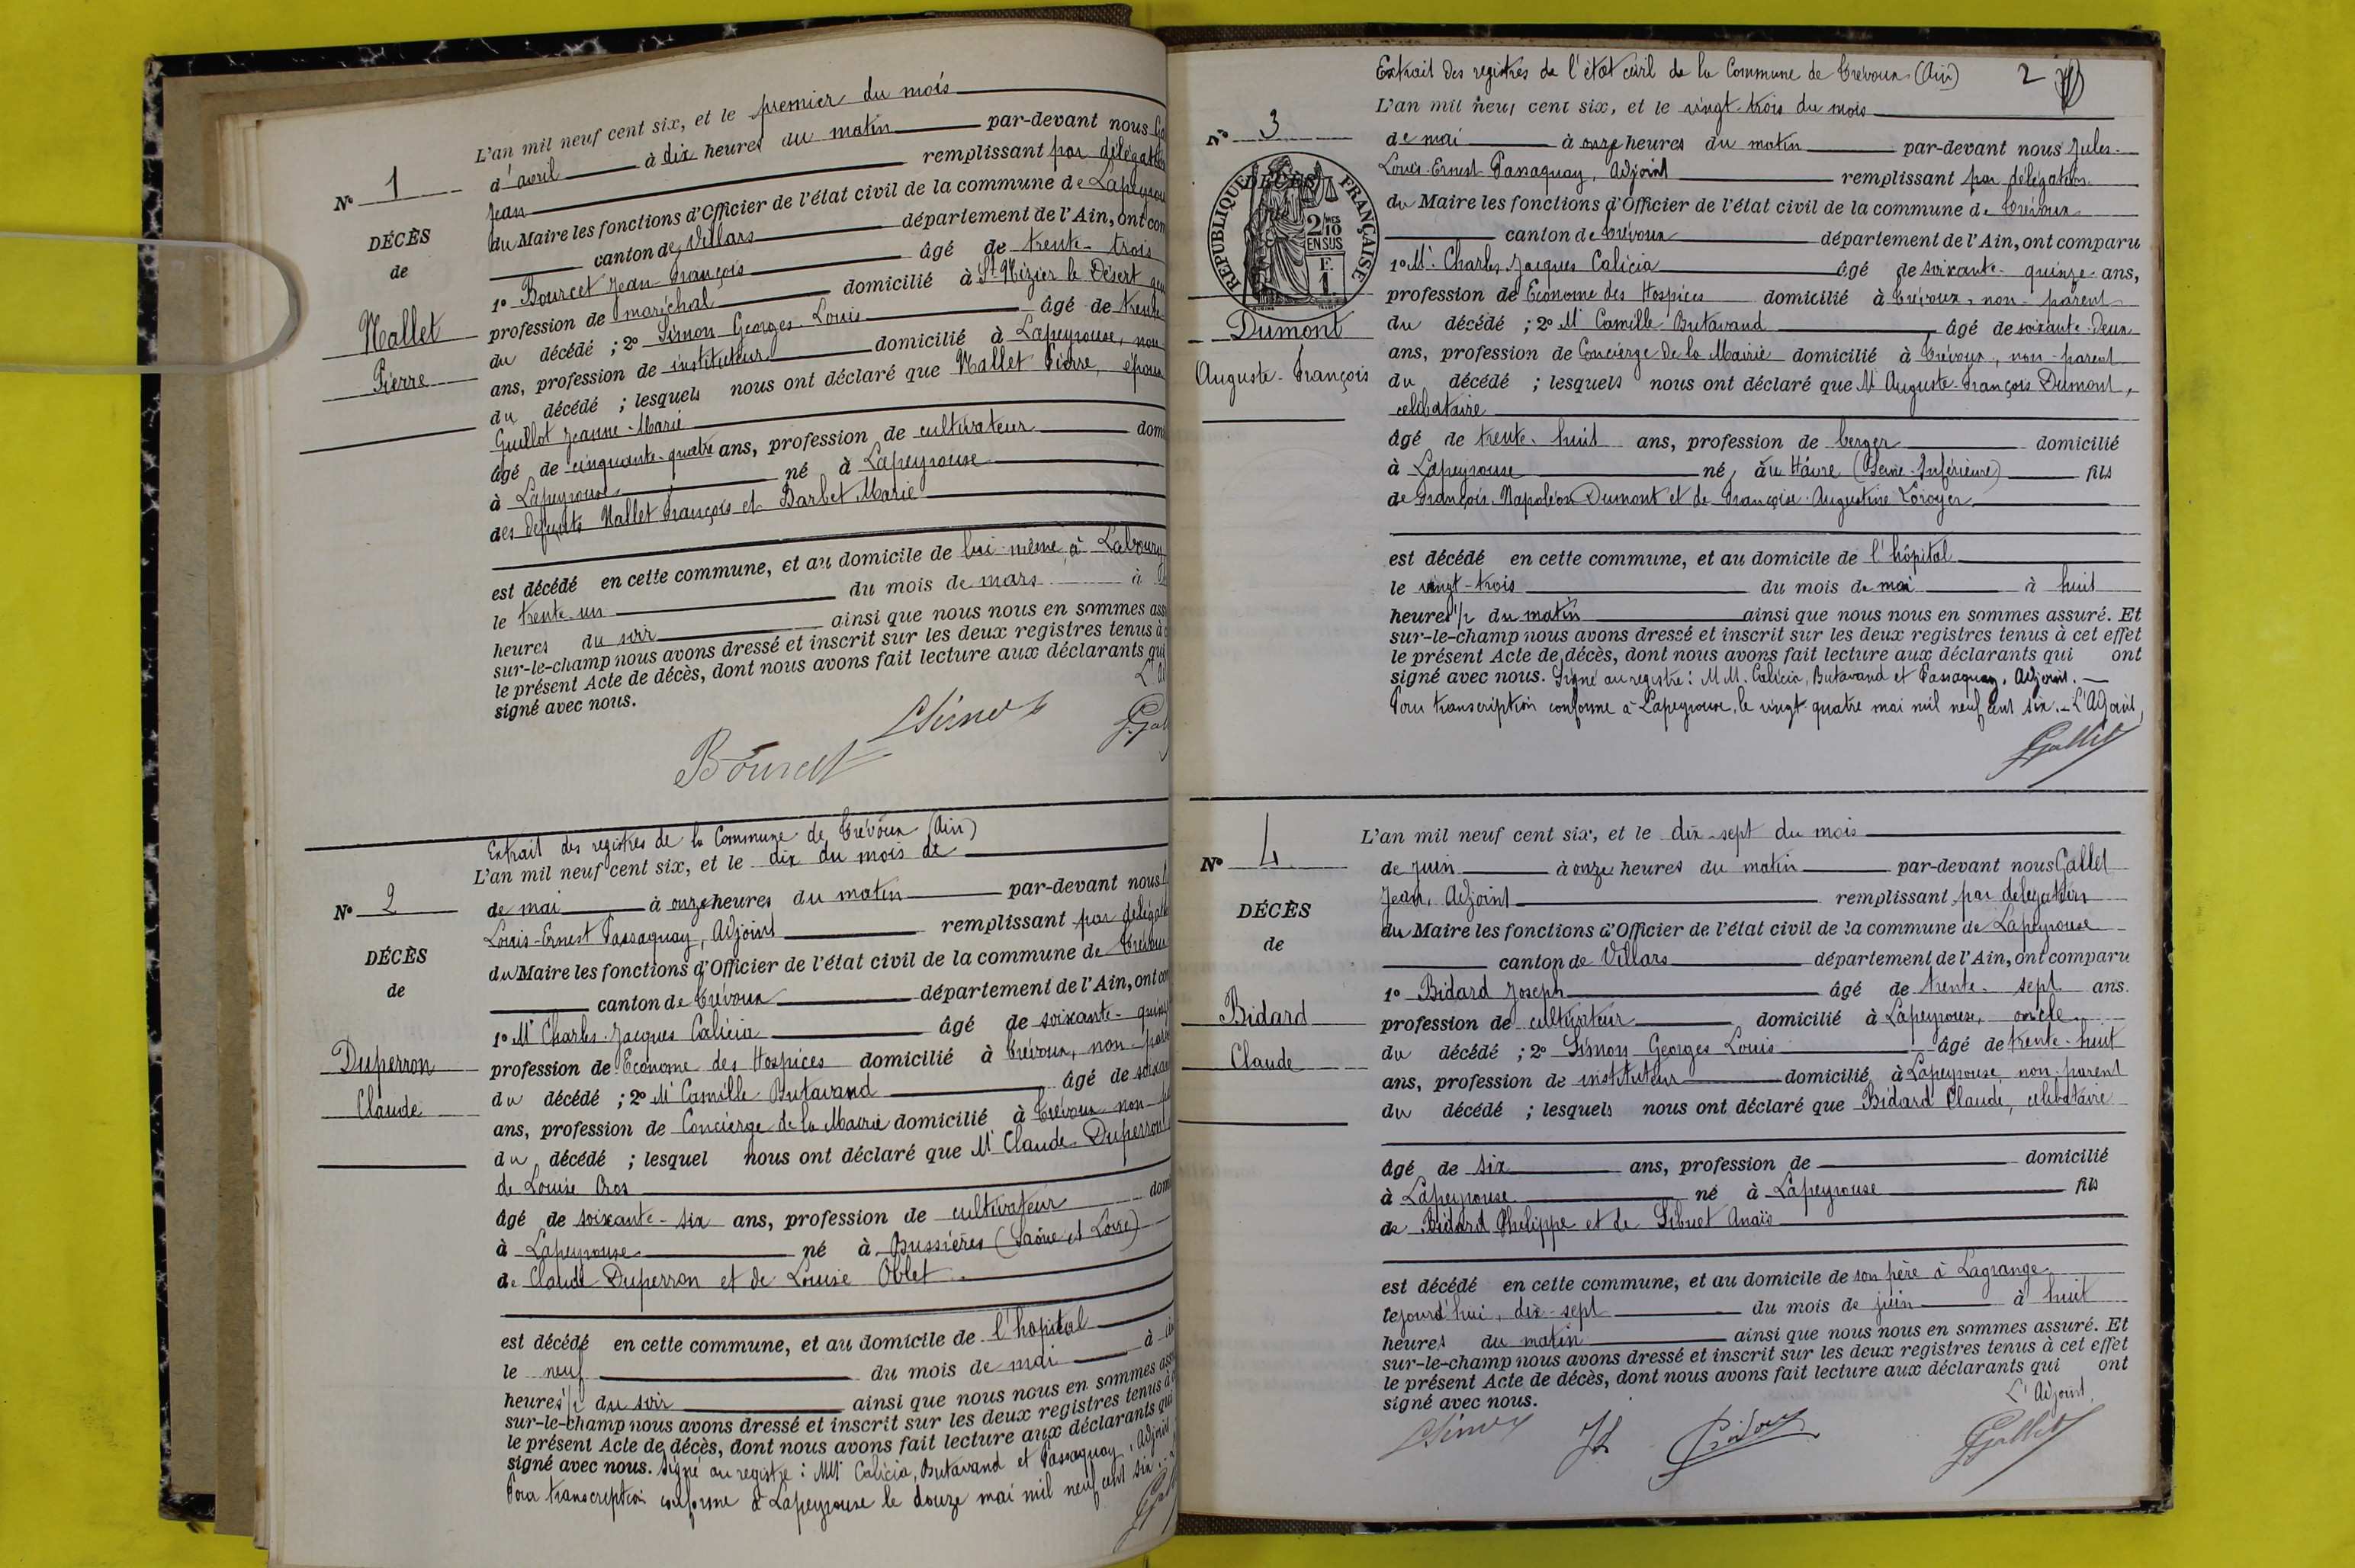 N° 1
DÉCÈS
de
Mallet
Pierre
L'an mil neuf cent six, et le premier du mois
d'avril à dix heures du matin par-devant nous
Jean remplissant par délégation
du Maire les fonctions d'Officier de l'état civil de la commune de Lapeyrou
canton de Villars département de l'Ain, ont com
1° Bourcet Jean François âgé de trente-trois
profession de maréchal domicilié à St Nizier le Désert
du décédé ; 2° Simon Georges Louis âgé de trente
ans, profession de instituteur domicilié à Lapeyrouse, non
du décédé ; lesquels nous ont déclaré que Mallet Pierre, époux
Guillot Jeanne-Marie
âgé de cinquante-quatre ans, profession de cultivateur dom
à Lapeyrouse né à Lapeyrouse
des défunts Mallet François et Barbet Marie
est décédé en cette commune, et au domicile de lui-même à
le trente-un du mois de mars à
heures du soir ainsi que nous nous en sommes ass
sur-le-champ nous avons dressé et inscrit sur les deux registres tenus à c
le présent Acte de décès, dont nous avons fait lecture aux déclarants qui
signé avec nous. L'A
Bourcet CSimon
Extrait des registres de la Commune de Trévoux (Ain)
N° 2
DÉCÈS
de
Duperron
Claude
L'an mil neuf cent six, et le dix du mois de
de mai à onze heures du matin par-devant nous
Louis-Ernest Passaquay, Adjoint remplissant par délégat
du Maire les fonctions d'Officier de l'état civil de la commune de Trévoux
canton de Trévoux département de l'Ain, ont com
1° Mr Charles-Jacques Calicia âgé de soixante-quinz
profession de Econome des Hospices domicilié à Trévoux, non-par
du décédé ; 2° Mr Camille Butavand âgé de soixan
ans, profession de Concierge de la Mairie domicilié à Trévoux non-p
du décédé ; lesquel nous ont déclaré que Mr Claude Duperron
de Louise Cros
âgé de soixante-six ans, profession de cultivateur dom
à Lapeyrouse né à Bussières (Saône et Loire)
de Claude Duperron et de Louise Oblet
est décédé en cette commune, et au domicile de l'hôpital
le neuf du mois de mai à
heures ½ du soir ainsi que nous nous en sommes ass
sur-le-champ nous avons dressé et inscrit sur les deux registres tenus à c
le présent Acte de décès, dont nous avons fait lecture aux déclarants qui
signé avec nous. Signé au registre : MM. Calicia, Butavand et Passaquay, Adjoint
Pour transcription conforme à Lapeyrouse le douze mai mil neuf cent six.
Extrait des registres de l'état civil de la Commune de Trévoux (Ain) 2
N° 3
DÉCÈS
RÉPUBLIQUE FRANÇAISE
2/10
EN SUS
F.
1
Dumont
Auguste-François
L'an mil neuf cent six, et le vingt-trois du mois
de mai à onze heures du matin par-devant nous Jules-
Louis-Ernest Passaquay, Adjoint remplissant par délégation
du Maire les fonctions d'Officier de l'état civil de la commune de Trévoux
canton de Trévoux département de l'Ain, ont comparu
1° Mr. Charles Jacques Calicia âgé de soixante-quinze ans,
profession de Econome des Hospices domicilié à Trévoux, non-parent
du décédé ; 2° Mr Camille Butavand âgé de soixante-deux
ans, profession de Concierge de la Mairie domicilié à Trévoux, non-parent
du décédé ; lesquels nous ont déclaré que Mr Auguste-François Dumont,
célibataire
âgé de trente-huit ans, profession de berger domicilié
à Lapeyrouse né, au Hâvre (Seine-Inférieure) fils
de François Napoléon Dumont et de Françoise Augustine Loroyer
est décédé en cette commune, et au domicile de l'hôpital
le vingt-trois du mois de mai à huit
heures ½ du matin ainsi que nous nous en sommes assuré. Et
sur-le-champ nous avons dressé et inscrit sur les deux registres tenus à cet effet
le présent Acte de décès, dont nous avons fait lecture aux déclarants qui ont
signé avec nous. Signé au registre : MM. Calicia, Butavand et Passaquay, Adjoint.
Pour transcription conforme à Lapeyrouse, le vingt quatre mai mil neuf cent six. L'Adjoint,
Gallet
N° 4
DÉCÈS
de
Bidard
Claude
L'an mil neuf cent six, et le dix-sept du mois
de juin à onze heures du matin par-devant nous Gallet
Jean, Adjoint remplissant par délégation
du Maire les fonctions d'Officier de l'état civil de la commune de Lapeyrouse
canton de Villars département de l'Ain, ont comparu
1° Bidard Joseph âgé de trente-sept ans.
profession de cultivateur domicilié à Lapeyrouse, oncle
du décédé ; 2° Simon Georges Louis âgé de trente-huit
ans, profession de instituteur domicilié à Lapeyrouse, non-parent
du décédé ; lesquels nous ont déclaré que Bidard Claude, célibataire
âgé de six ans, profession de domicilié
à Lapeyrouse né à Lapeyrouse fils
de Bidard Philippe et de Sibuet Anaïs
est décédé en cette commune, et au domicile de son père à Lagrange
lejourd'hui, dix-sept du mois de juin à huit
heures du matin ainsi que nous nous en sommes assuré. Et
sur-le-champ nous avons dressé et inscrit sur les deux registres tenus à cet effet
le présent Acte de décès, dont nous avons fait lecture aux déclarants qui ont
signé avec nous. L'Adjoint,
CSimon Bidard Gallet